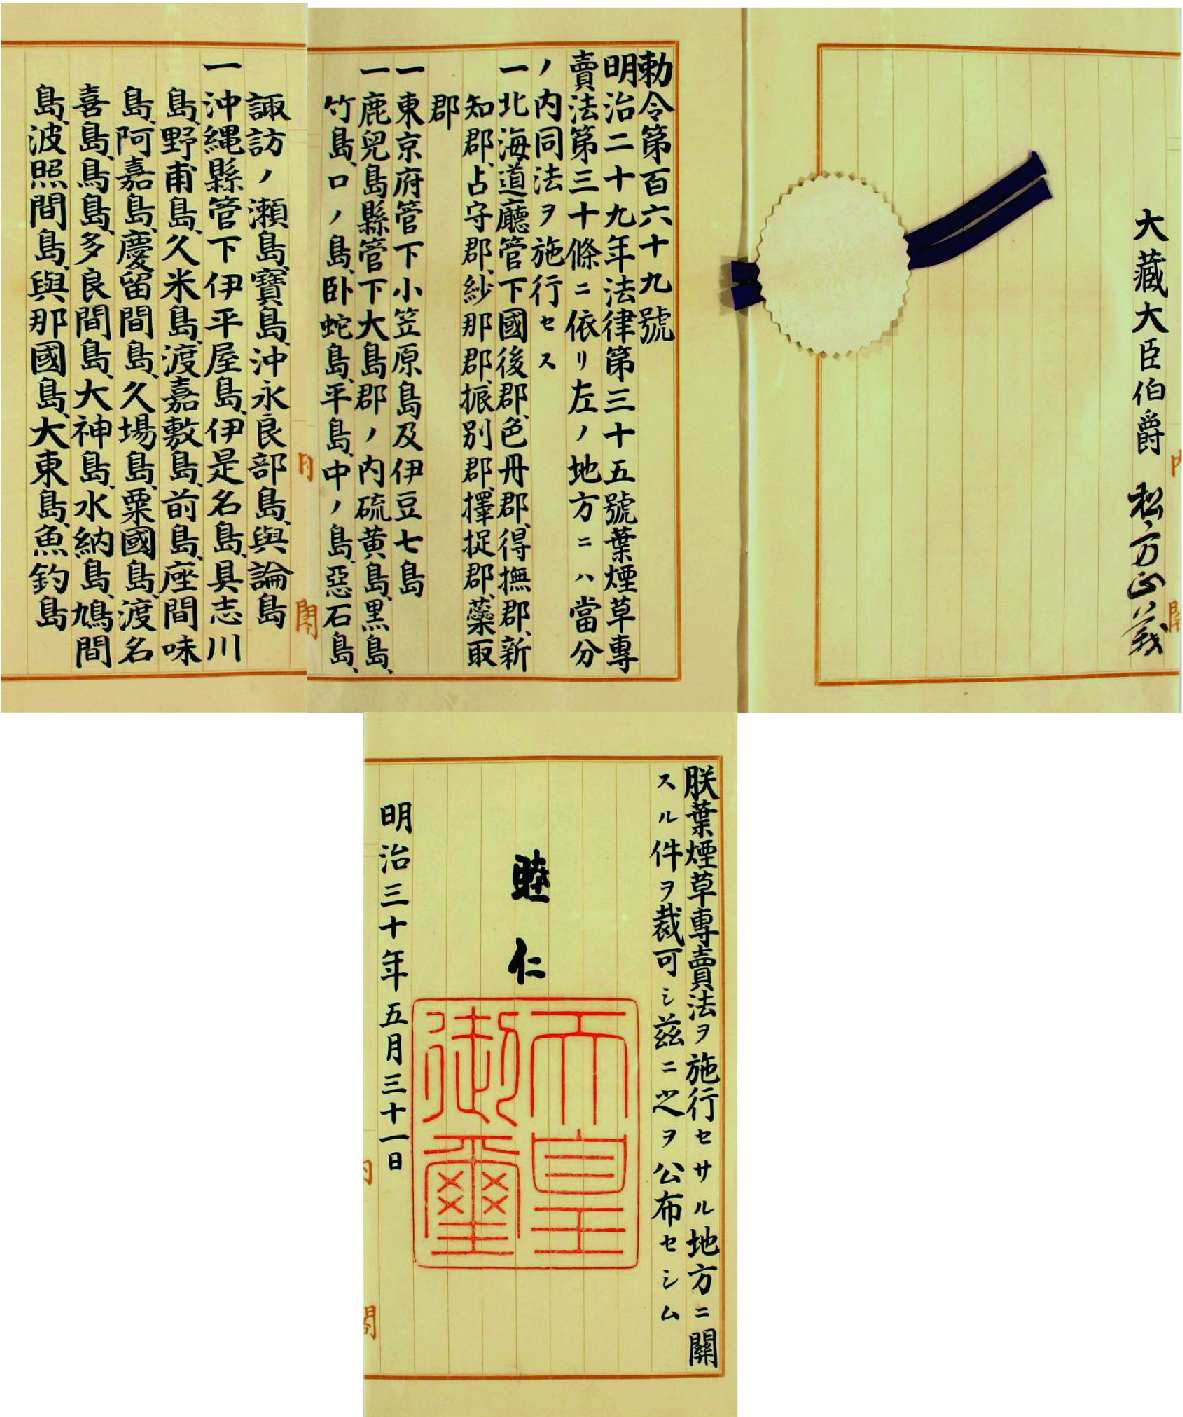 大藏大臣伯爵 松方正義
勅令第百六十九號
明治二十九年法律第三十五號葉煙草專
賣法第三十條ニ依リ左ノ地方ニハ當分
ノ内同法ヲ施行セス
一北海道廳管下國後郡、色丹郡、得撫郡、新
知郡、占守郡、紗那郡、振別郡、擇捉郡、蘂取
郡
一東京府管下小笠原島及伊豆七島
一鹿兒島縣管下大島郡ノ内硫黄島、黒島、
竹島、口ノ島、卧蛇島、平島、中ノ島、惡石島、
諏訪ノ瀬島、寶島、沖永良部島、與論島
一沖縄縣管下伊平屋島、伊是名島、具志川
島、野甫島、久米島、渡嘉敷島、前島、座間味
島、阿嘉島、慶留間島、久場島、粟國島、渡名
喜島、鳥島、多良間島、大神島、水納島、鳩間
島、波照間島、與那國島、大東島、魚釣島
朕葉煙草專賣法ヲ施行セサル地方ニ關
スル件ヲ裁可シ茲ニ之ヲ公布セシム
睦仁
天皇
御璽
明治三十年五月三十一日